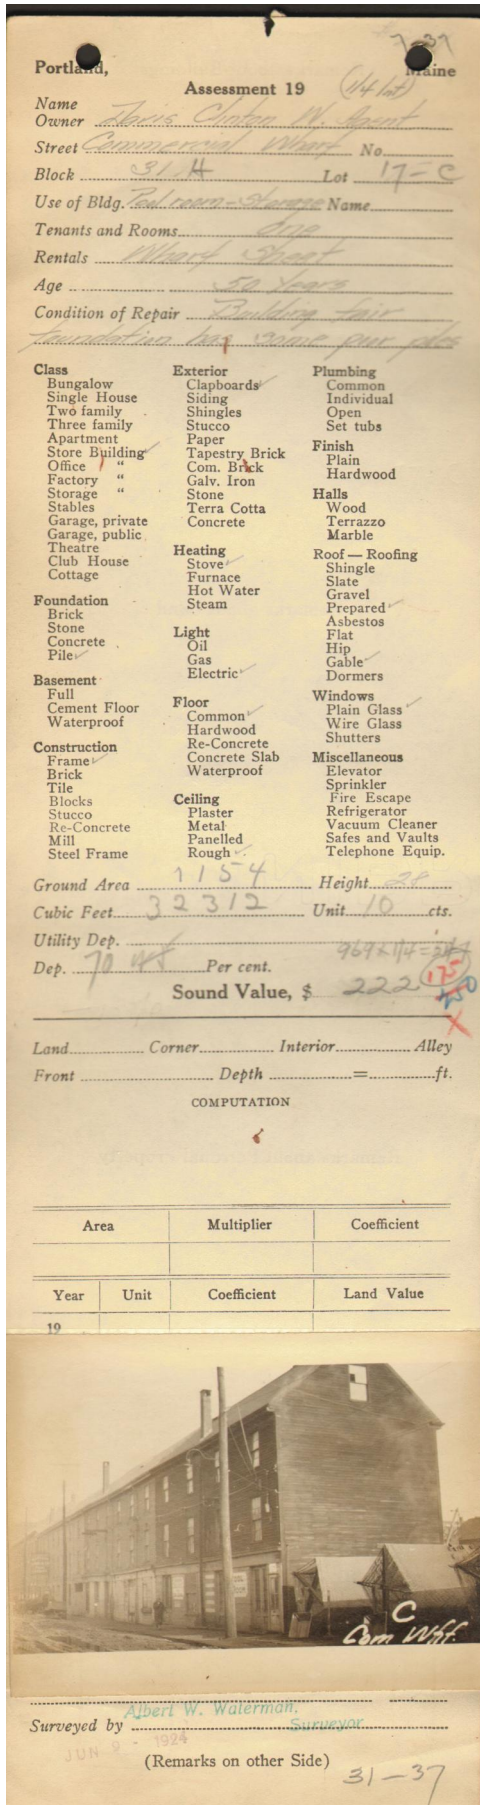 7-37
Portland, Maine
Assessment 19 (1/4 int)
Name
Owner Davis Clinton W. Agent
Street Commercial Wharf No.
Block 31 H Lot 17-C
Use of Bldg. Pool room-Storage Name
Tenants and Rooms one
Rentals Wharf Sheet
Age 50 years
Condition of Repair Building fair
foundation has some piles
Class
Bungalow
Single House
Two family
Three family
Apartment
Store Building ✓
Office "
Factory "
Storage "
Stables
Garage, private
Garage, public
Theatre
Club House
Cottage
Foundation
Brick
Stone
Concrete
Pile ✓
Basement
Full
Cement Floor
Waterproof
Construction
Frame ✓
Brick
Tile
Blocks
Stucco
Re-Concrete
Mill
Steel Frame
Exterior
Clapboards ✓
Siding
Shingles
Stucco
Paper
Tapestry Brick
Com. Brick
Galv. Iron
Stone
Terra Cotta
Concrete
Heating
Stove ✓
Furnace
Hot Water
Steam
Light
Oil
Gas
Electric ✓
Floor
Common ✓
Hardwood
Re-Concrete
Concrete Slab
Waterproof
Ceiling
Plaster
Metal
Panelled
Rough ✓
Plumbing
Common
Individual
Open
Set tubs
Finish
Plain
Hardwood
Halls
Wood
Terrazzo
Marble
Roof — Roofing
Shingle
Slate
Gravel
Prepared ✓
Asbestos
Flat
Hip
Gable ✓
Dormers
Windows
Plain Glass ✓
Wire Glass
Shutters
Miscellaneous
Elevator
Sprinkler
Fire Escape
Refrigerator
Vacuum Cleaner
Safes and Vaults
Telephone Equip.
Ground Area 1154 Height 28
Cubic Feet 32312 Unit 10 cts.
Utility Dep.
969 x 1/4 =
Dep. 70 Per cent.
Sound Value, $ 222 175
250
X
Land Corner Interior Alley
Front Depth = ft.
COMPUTATION
Area Multiplier Coefficient
Year Unit Coefficient Land Value
19
C
Com Whf.
Albert W. Waterman,
Surveyed by Surveyor
JUN 9 - 1924
(Remarks on other Side)
31-37